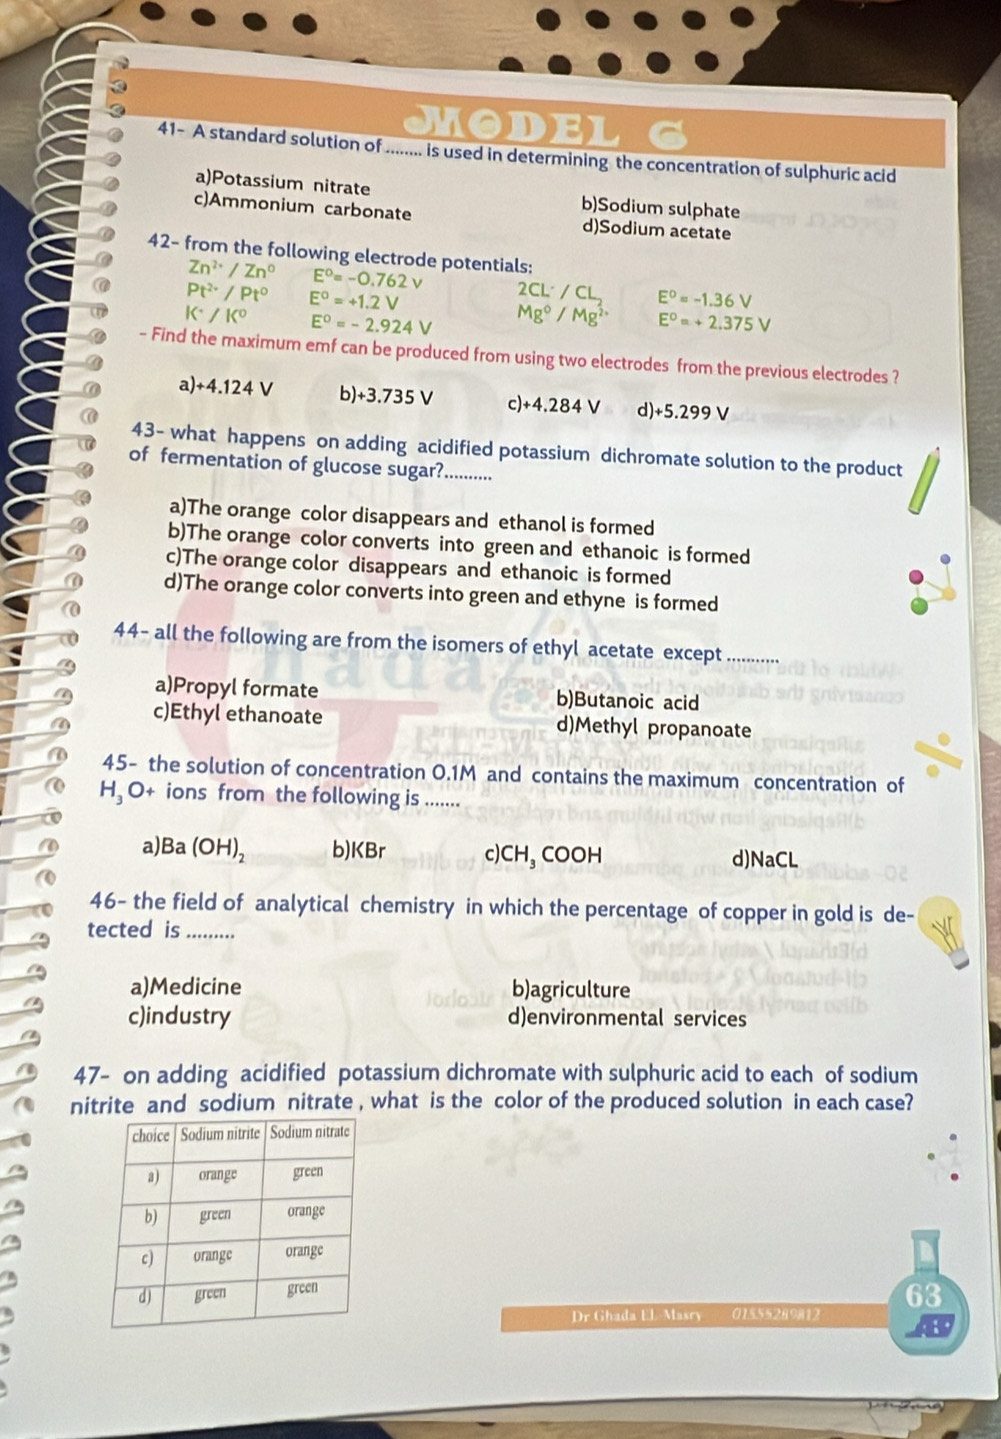 MODEL G
41- A standard solution of ........ is used in determining the concentration of sulphuric acid
a)Potassium nitrate
b)Sodium sulphate
c)Ammonium carbonate
d)Sodium acetate
42- from the following electrode potentials:
Zn²⁺ / Zn⁰ E⁰= -0.762 v
2CL⁻ / CL₂ E⁰ = -1.36 V
Pt²⁺ / Pt⁰ E⁰ = +1.2 V
Mg⁰ / Mg²⁺ E⁰ = + 2.375 V
K⁺ / K⁰ E⁰ = - 2.924 V
- Find the maximum emf can be produced from using two electrodes from the previous electrodes ?
a)+4.124 V b)+3.735 V c)+4.284 V d)+5.299 V
43- what happens on adding acidified potassium dichromate solution to the product
of fermentation of glucose sugar?..........
a)The orange color disappears and ethanol is formed
b)The orange color converts into green and ethanoic is formed
c)The orange color disappears and ethanoic is formed
d)The orange color converts into green and ethyne is formed
44- all the following are from the isomers of ethyl acetate except ...........
a)Propyl formate
b)Butanoic acid
c)Ethyl ethanoate
d)Methyl propanoate
45- the solution of concentration 0.1M and contains the maximum concentration of
H₃O+ ions from the following is .......
a)Ba (OH)₂ b)KBr c)CH₃ COOH d)NaCL
46- the field of analytical chemistry in which the percentage of copper in gold is de-
tected is .........
a)Medicine b)agriculture
c)industry d)environmental services
47- on adding acidified potassium dichromate with sulphuric acid to each of sodium
nitrite and sodium nitrate , what is the color of the produced solution in each case?
choice Sodium nitrite Sodium nitrate
a) orange green
b) green orange
c) orange orange
d) green green
63
Dr Ghada EL-Masry 01555289812